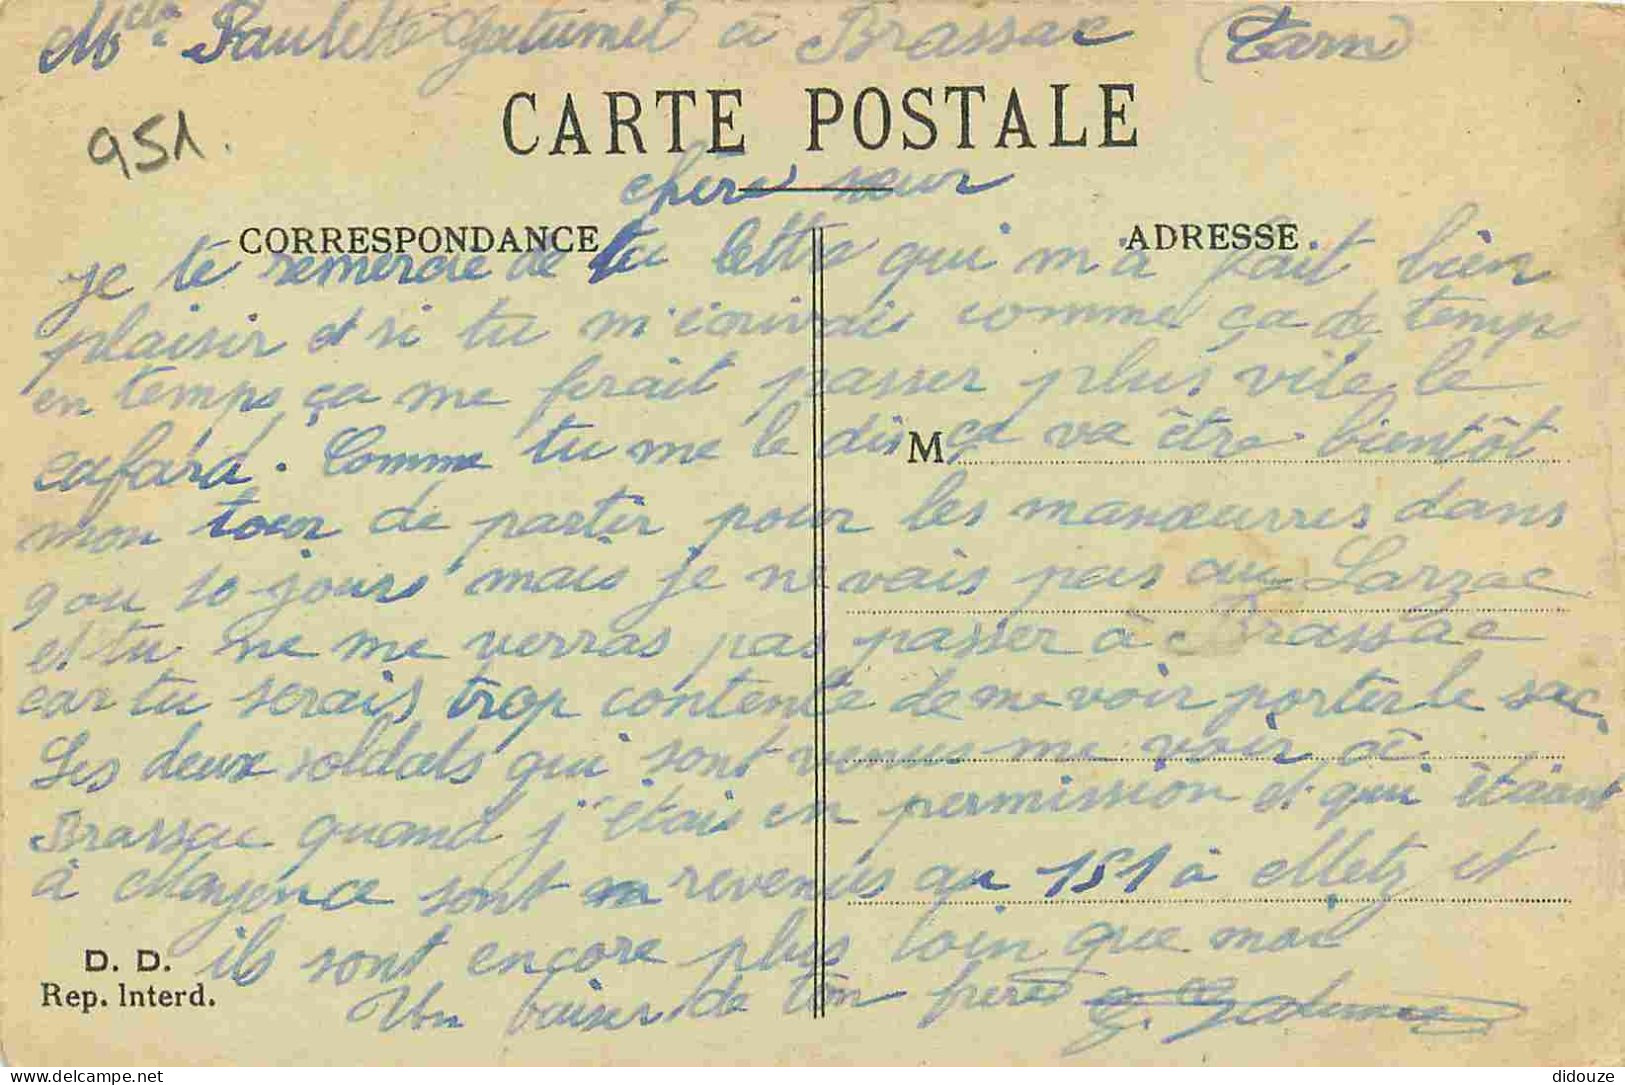 Melle Paulette Galumet à Brassac (Tarn)
951.
CARTE POSTALE
chère sœur
CORRESPONDANCE
ADRESSE
je te remercie de tu lettre qui m'a fait bien
plaisir et si tu m'écrivais comme ça de temps
en temps ça me ferait passer plus vite le
cafard. Comme tu me le dis ça va être bientôt
M
mon tour de partir pour les manœuvres dans
9 ou 10 jours mais je ne vais pas au Larzac
et tu ne me verras pas passer à Brassac
car tu serais trop contente de me voir porter le sac.
Les deux soldats qui sont venus me voir à
Brassac quand j'étais en permission et qui étaient
à Mayence sont revenus au 151 à Metz et
ils sont encore plus loin que moi
Un baiser de ton frère
G. Galumet
D. D.
Rep. Interd.
didouze